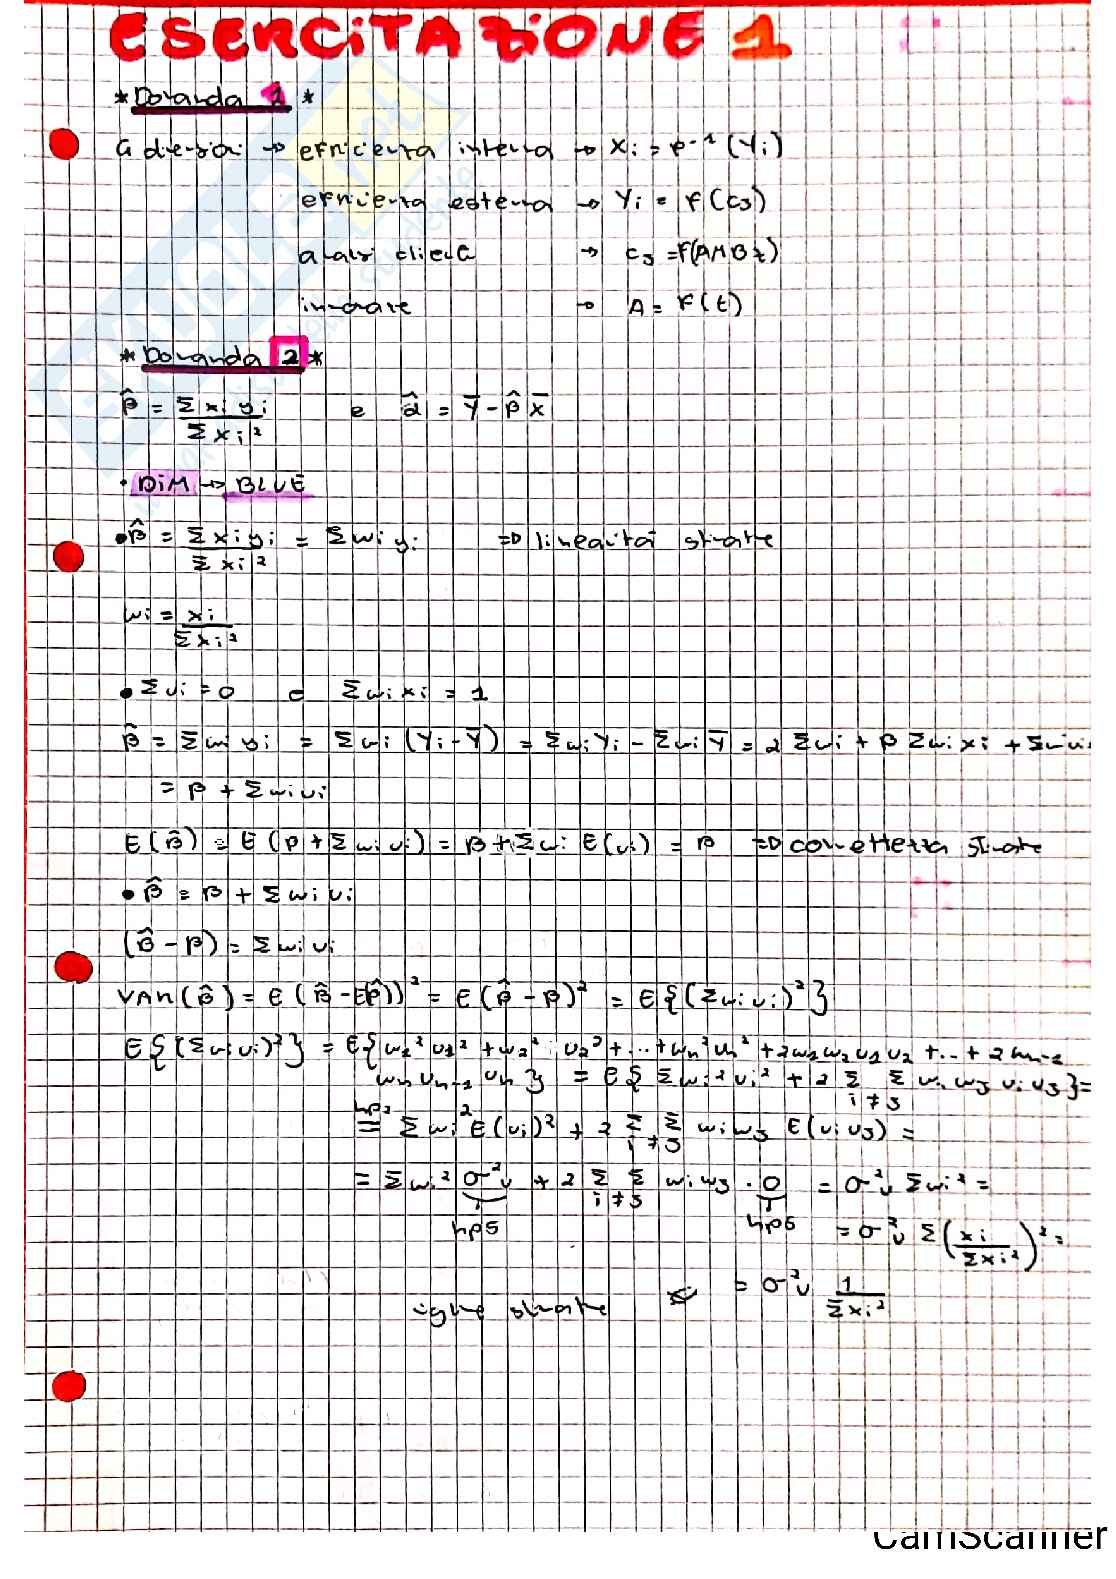 ESERCITAZIONE 1
* Domanda 1 *
4 diversi → efficienza interna → Xi = f⁻¹ (Yi)
efficienza esterna → Yi = f(cj)
analisi clienti → cj = f(AMBt)
→ A = f(t)
* Domanda 2 *
β̂ = Σxi yi / Σxi² e α̂ = Ȳ - β̂ X̄
· DIM → BLUE
• β̂ = Σxi yi / Σxi² = Σwi yi ⇒ linearità stimatore
wi = xi / Σxi²
• Σwi = 0 e Σwi xi = 1
β̂ = Σwi yi = Σwi (Yi - Ȳ) = Σwi Yi - Σwi Ȳ = α Σwi + β Σwi xi + Σwi ui
= β + Σwi ui
E(β̂) = E(β + Σwi ui) = β + Σwi E(ui) = β ⇒ correttezza stimatore
• β̂ = β + Σwi ui
(β̂ - β) = Σwi ui
VAR(β̂) = E(β̂ - E(β̂))² = E(β̂ - β)² = E{(Σwi ui)²}
E{(Σwi ui)²} = E{w1² u1² + w2² u2² + ... + wn² un² + 2w1 w2 u1 u2 + ... + 2wn-1
wn un-1 un} = E{Σwi² ui² + 2 Σ Σ wi wj ui uj} =
i ≠ j
hp2
= Σwi² E(ui)² + 2 Σ Σ wi wj E(ui uj) =
i ≠ j
= Σwi² σ²u + 2 Σ Σ wi wj · 0 = σ²u Σwi² =
i ≠ j
hp5 hp6 = σ²u Σ(xi / Σxi²)² =
stimatore = σ²u 1 / Σxi²
CamScanner